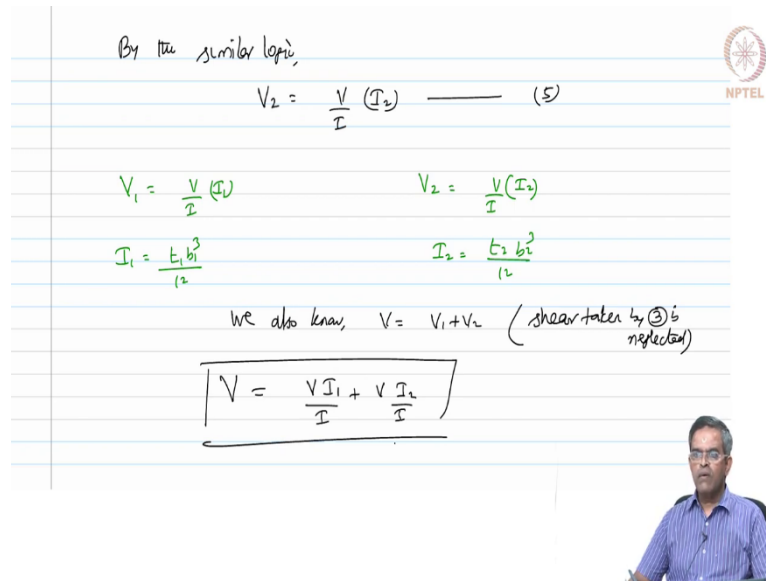 By the similar logic,
V₂ = V/I (I₂) ——— (5)
NPTEL
V₁ = V/I (I₁) V₂ = V/I (I₂)
I₁ = t₁b₁³/12 I₂ = t₂b₂³/12
We also know, V = V₁+V₂ (shear taken by ③ is
neglected)
V = VI₁/I + V I₂/I